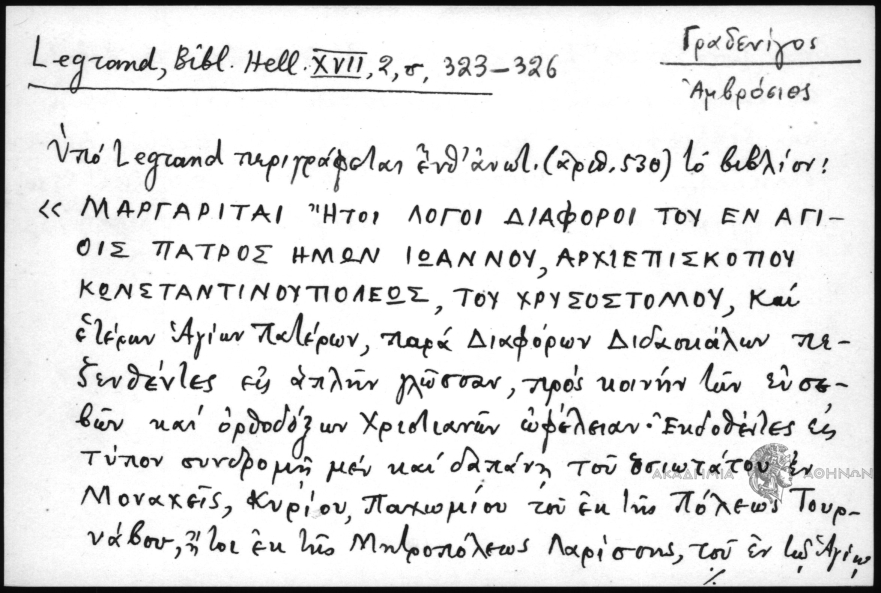 Legrand, Bibl. Hell. XVII, 2, σ, 323–326
Γραδενίγος
Ἀμβρόσιος
Ὑπό Legrand περιγράφεται ἐνθ' ἀνωτ. (ἀριθ. 530) τό βιβλίον:
« ΜΑΡΓΑΡΙΤΑΙ Ἤτοι ΛΟΓΟΙ ΔΙΑΦΟΡΟΙ ΤΟΥ ΕΝ ΑΓΙ–
ΟΙΣ ΠΑΤΡΟΣ ΗΜΩΝ ΙΩΑΝΝΟΥ, ΑΡΧΙΕΠΙΣΚΟΠΟΥ
ΚΩΝΣΤΑΝΤΙΝΟΥΠΟΛΕΩΣ, ΤΟΥ ΧΡΥΣΟΣΤΟΜΟΥ, Καί
ἑτέρων Ἁγίων Πατέρων, παρά Διαφόρων Διδασκάλων πε–
ζευθέντες εἰς ἁπλῆν γλῶσσαν, πρός κοινήν τῶν εὐσε–
βῶν καί ὀρθοδόξων Χριστιανῶν ὠφέλειαν. Ἐκδοθέντες εἰς
τύπον συνδρομῇ μέν καί δαπάνῃ τοῦ ὁσιωτάτου ἐν
Μοναχοῖς, Κυρίου, Παχωμίου τοῦ ἐκ τῆς Πόλεως Τουρ–
νάβου, ἤτοι ἐκ τῆς Μητροπόλεως Λαρίσσης, τοῦ ἐν τῷ Ἁγίῳ
./.
ΑΚΑΔΗΜΙΑ ΑΘΗΝΩΝ